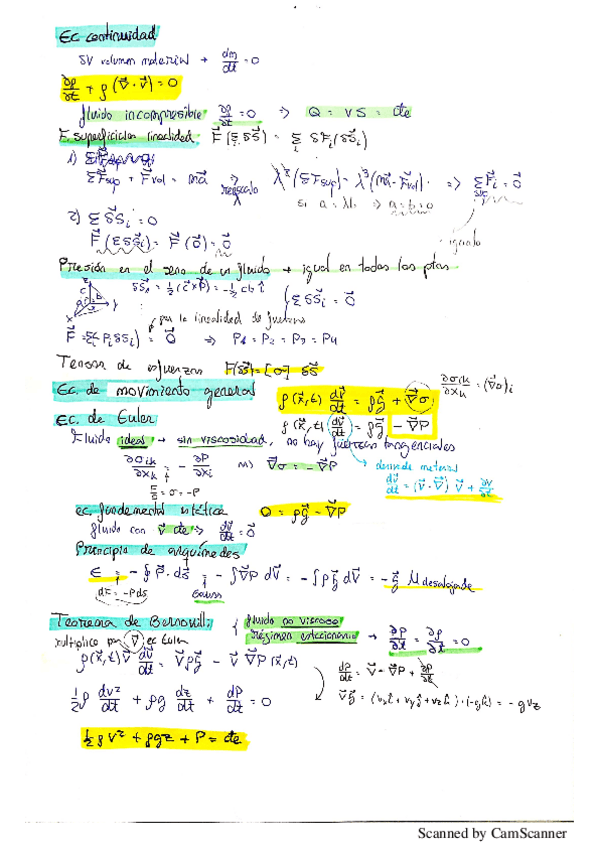 Ec continuidad
δV volumen material → dm/dt = 0
∂ρ/∂t + ρ(∇⃗·v⃗) = 0
fluido incompresible ∂ρ/∂t = 0 ⇒ Q = v S = cte
F superficiales linealidad F⃗(Σ δS⃗) = Σ δF_i(δS⃗_i)
1)
ΣF⃗sup + F⃗vol = ma⃗ ⇒ λ²(ΣF⃗sup) = λ³(ma⃗ - F⃗vol) ⇒ ΣF⃗_i = 0⃗
reescalo
2) Σ δS⃗_i = 0
F⃗(Σ δS⃗_i) = F⃗(0⃗) = 0⃗
igualo
Presión en el seno de un fluido → igual en todas las ptas
δS⃗₁ = ½(c⃗×b⃗) = -½ cb î { Σ δS⃗_i = 0⃗
por la linealidad de fuerzas
F⃗ = Σ(-P_i δS_i) = 0⃗ ⇒ P₁ = P₂ = P₃ = P₄
Tensor de esfuerzos F(δS⃗) = [σ] δS⃗
∂σik/∂xk = (∇⃗σ)i
Ec. de movimiento general ρ(x⃗,t) dv⃗/dt = ρg⃗ + ∇⃗σ
Ec. de Euler ρ(x⃗,t) dv⃗/dt = ρg⃗ - ∇⃗P
Fluido ideal → sin viscosidad, no hay fuerzas tangenciales
∂σik/∂xk = - ∂P/∂xi ⇒ ∇⃗σ = - ∇⃗P
→ derivada material
dv⃗/dt = (v⃗·∇⃗) v⃗ + ∂v⃗/∂t
ec. fundamental estática 0 = ρg⃗ - ∇⃗P
fluido con v⃗ cte ⇒ dv⃗/dt = 0⃗
Principio de arquímedes
E = -∮ P·ds⃗ = -∫∇⃗P dV = -∫ρg⃗ dV = -g⃗ M desalojada
dE = -Pds
Gauss
Teorema de Bernoulli { fluido no viscoso
Régimen estacionario → ∂P/∂t = ∂ρ/∂t = 0
multiplico por v⃗ ec Euler
ρ(x⃗,t) v⃗ dv⃗/dt = v⃗ρg⃗ - v⃗ ∇⃗P(x⃗,t)
dP/dt = v⃗·∇⃗P + ∂P/∂t
v⃗g⃗ = (vx î + vy ĵ + vz k̂)·(-g k̂) = -g vz
½ρ dv²/dt + ρg dz/dt + dP/dt = 0
½ρv² + ρgz + P = cte
Scanned by CamScanner